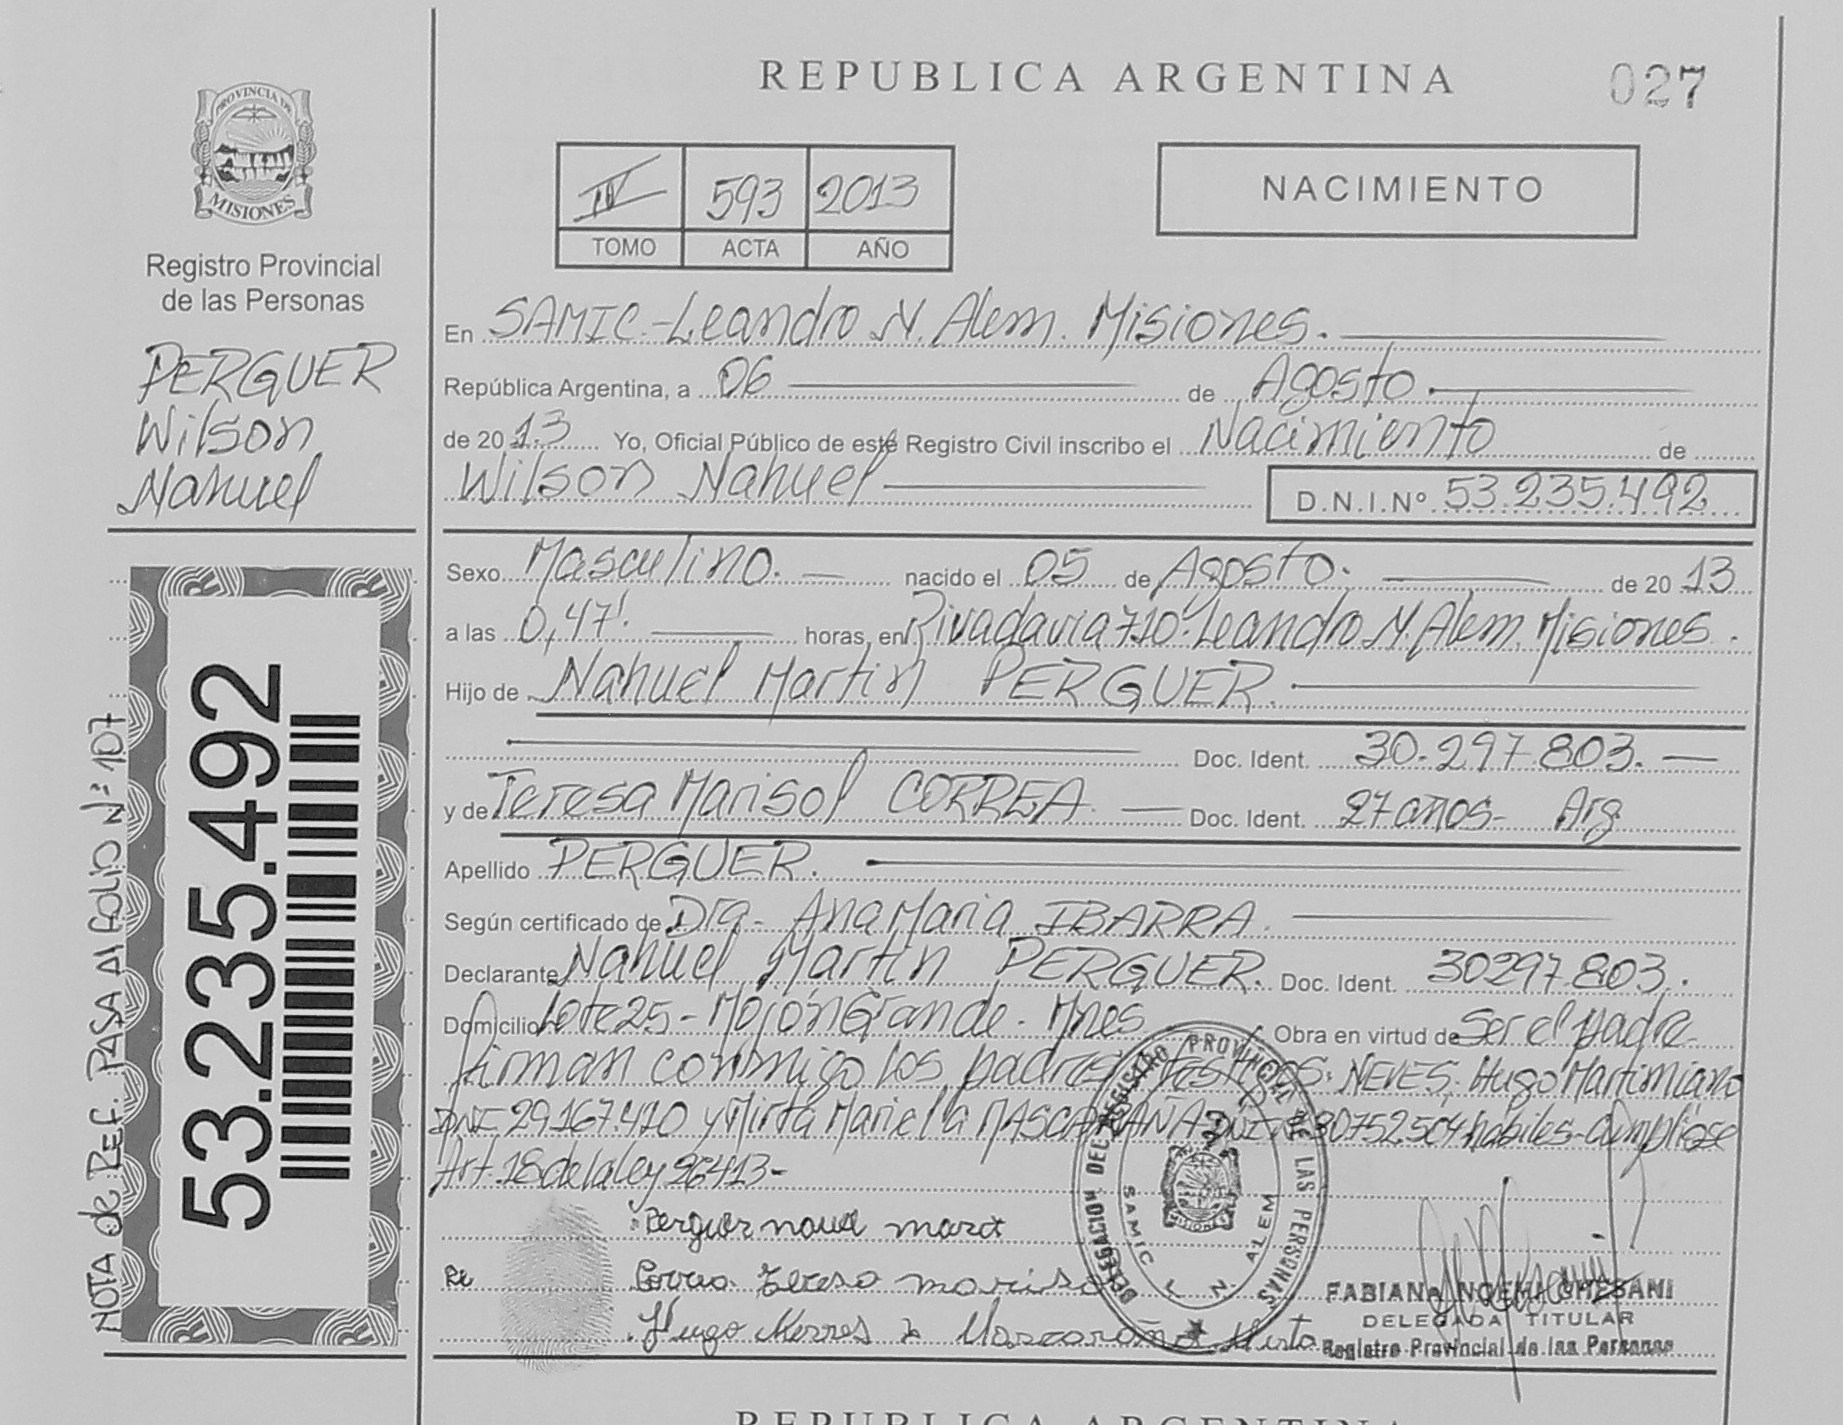 REPUBLICA ARGENTINA
027
PROVINCIA DE
MISIONES
Registro Provincial
de las Personas
PERGUER
Wilson
Nahuel
NOTA de REF. PASA Al FOLIO Nº 107
53.235.492
IV 593 2013
TOMO ACTA AÑO
NACIMIENTO
En SAMIC-Leandro N. Alem. Misiones.
República Argentina, a 06 de Agosto.
de 2013 Yo, Oficial Público de este Registro Civil inscribo el Nacimiento de
Wilson Nahuel D.N.I.Nº 53.235.492
Sexo Masculino. nacido el 05 de Agosto. de 2013
a las 0,47'. horas, en Rivadavia 710. Leandro N. Alem. Misiones.
Hijo de Nahuel Martin PERGUER.
Doc. Ident. 30.297.803.
y de Teresa Marisol CORREA. Doc. Ident. 27 años- Arg
Apellido PERGUER.
Según certificado de Dra- Ana Maria IBARRA.
Declarante Nahuel Martin PERGUER. Doc. Ident. 30297803.
Domicilio Lote 25 - Mojón Grande. Mnes Obra en virtud de Ser el padre
firman conmigo los padres testigos: NEVES, Hugo Martimiano
DNI 29.167.410 y Mirta Mariella MASCARAÑA DNI 30752.504 hábiles- Cumpliose
Art. 18 de la ley 26413-
Perguer
Correa Teresa mariso
Hugo Mirta
DELEGACION DEL REGISTRO PROVINCIAL DE LAS PERSONAS
SAMIC L. N. ALEM
MISIONES
FABIANA NOEMI GHESANI
DELEGADA TITULAR
Registro Provincial de las Personas
REPUBLICA ARGENTINA